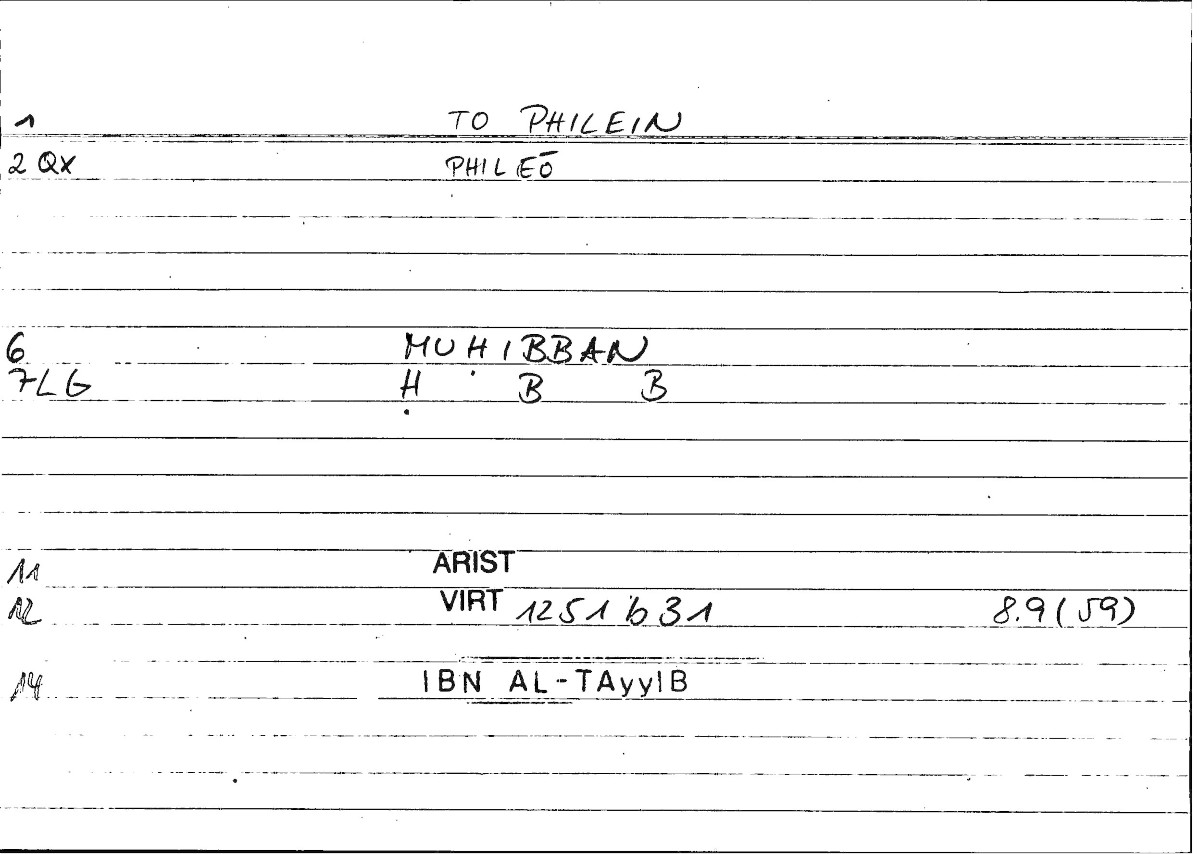 1 TO PHILEIN
2 QX PHILEŌ
6 MUḤIBBAN
7LG Ḥ B B
11 ARIST
12 VIRT 1251 b 31 8.9 (59)
14 IBN AL-TAyyIB